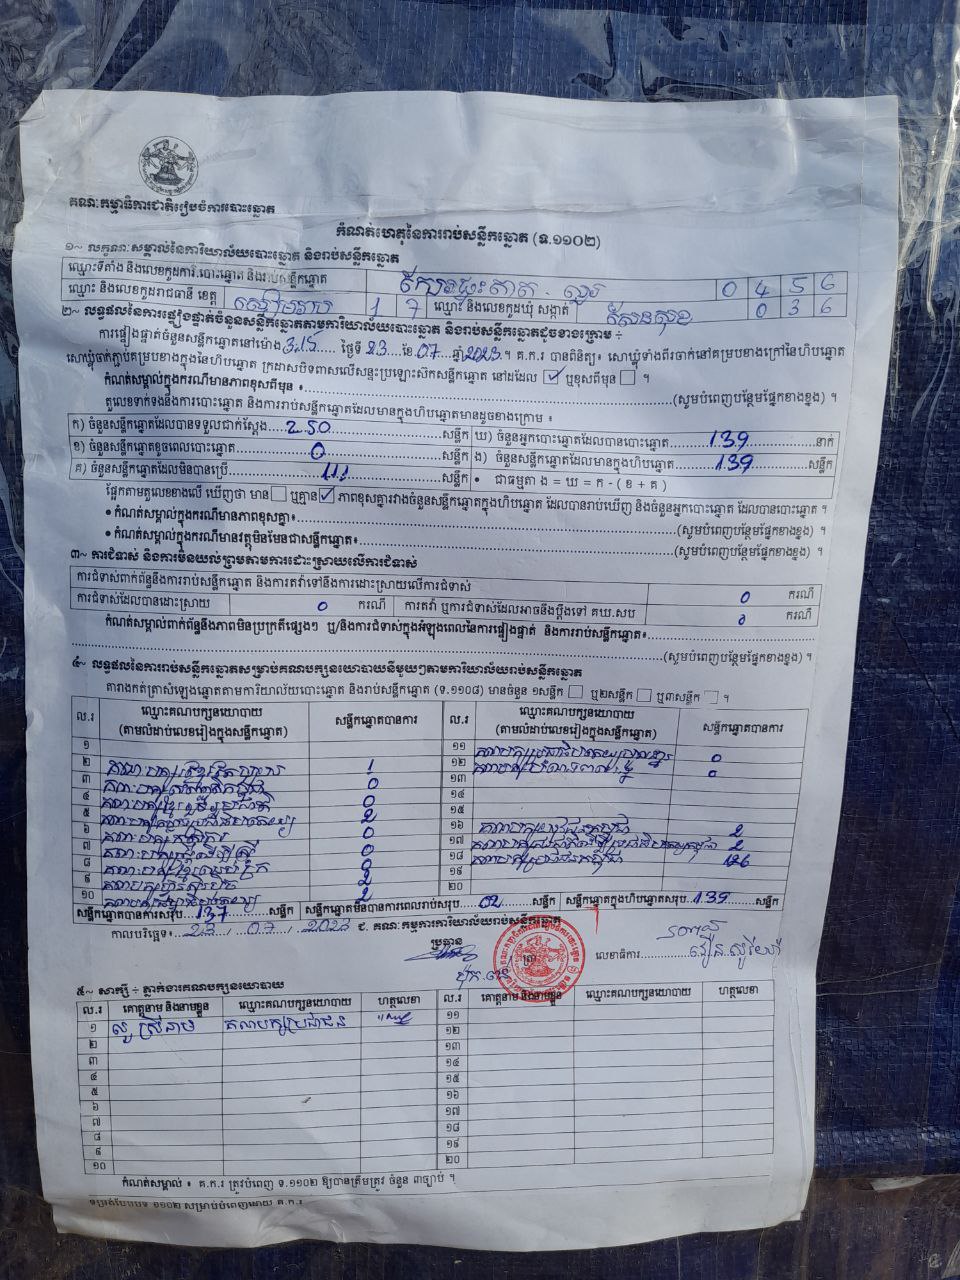 គណៈកម្មាធិការជាតិរៀបចំការបោះឆ្នោត
កំណត់ហេតុនៃការរាប់សន្លឹកឆ្នោត (ទ.១១០២)
១~ លក្ខណៈសម្គាល់នៃការិយាល័យបោះឆ្នោត និងរាប់សន្លឹកឆ្នោត
ឈ្មោះទីតាំង និងលេខកូដការិ.បោះឆ្នោត និងរាប់សន្លឹកឆ្នោត 0 4 5 6
ឈ្មោះ និងលេខកូដរាជធានី ខេត្ត សៀមរាប 1 7 ឈ្មោះ និងលេខកូដឃុំ សង្កាត់ សែនសុខ 0 3 6
២~ លទ្ធផលនៃការផ្ទៀងផ្ទាត់ចំនួនសន្លឹកឆ្នោតតាមការិយាល័យបោះឆ្នោត និងរាប់សន្លឹកឆ្នោតដូចខាងក្រោម ÷
ការផ្ទៀងផ្ទាត់ចំនួនសន្លឹកឆ្នោតនៅម៉ោង 3:15 ថ្ងៃទី 23 ខែ 07 ឆ្នាំ 2023 ។ គ.ក.រ បានពិនិត្យ៖ សោឃ្លុំទាំងពីរចាក់នៅគម្របខាងក្រៅនៃហិបឆ្នោត
សោឃ្លុំចាក់ភ្ជាប់គម្របខាងក្នុងនៃហិបឆ្នោត ក្រដាសបិទពាសលើសន្ទះប្រឡោះស៊កសន្លឹកឆ្នោត នៅដដែល ☑ ឬខុសពីមុន ☐ ។
កំណត់សម្គាល់ក្នុងករណីមានភាពខុសពីមុន ៖ (សូមបំពេញបន្ថែមផ្នែកខាងខ្នង) ។
តួលេខទាក់ទងនឹងការបោះឆ្នោត និងការរាប់សន្លឹកឆ្នោតដែលមានក្នុងហិបឆ្នោតមានដូចខាងក្រោម ៖
ក) ចំនួនសន្លឹកឆ្នោតដែលបានទទួលជាក់ស្តែង 250 សន្លឹក ឃ) ចំនួនអ្នកបោះឆ្នោតដែលបានបោះឆ្នោត 139 នាក់
ខ) ចំនួនសន្លឹកឆ្នោតខូចពេលបោះឆ្នោត 0 សន្លឹក ង) ចំនួនសន្លឹកឆ្នោតដែលមានក្នុងហិបឆ្នោត 139 សន្លឹក
គ) ចំនួនសន្លឹកឆ្នោតដែលមិនបានប្រើ 111 សន្លឹក • ជាធម្មតា ង = ឃ = ក - ( ខ + គ )
ផ្អែកតាមតួលេខខាងលើ ឃើញថា មាន ☐ ឬគ្មាន ☑ ភាពខុសគ្នារវាងចំនួនសន្លឹកឆ្នោតក្នុងហិបឆ្នោត ដែលបានរាប់ឃើញ និងចំនួនអ្នកបោះឆ្នោត ដែលបានបោះឆ្នោត ។
• កំណត់សម្គាល់ក្នុងករណីមានភាពខុសគ្នា៖ (សូមបំពេញបន្ថែមផ្នែកខាងខ្នង) ។
• កំណត់សម្គាល់ក្នុងករណីមានវត្ថុមិនមែនជាសន្លឹកឆ្នោត៖ (សូមបំពេញបន្ថែមផ្នែកខាងខ្នង) ។
៣~ ការជំទាស់ និងការមិនយល់ព្រមតាមការដោះស្រាយលើការជំទាស់
ការជំទាស់ពាក់ព័ន្ធនឹងការរាប់សន្លឹកឆ្នោត និងការតវ៉ាទៅនឹងការដោះស្រាយលើការជំទាស់ 0 ករណី
ការជំទាស់ដែលបានដោះស្រាយ 0 ករណី ការតវ៉ា ឬការជំទាស់ដែលអាចនឹងប្តឹងទៅ គឃ.សប 0 ករណី
កំណត់សម្គាល់ពាក់ព័ន្ធនឹងភាពមិនប្រក្រតីផ្សេងៗ ឬ/និងការជំទាស់ក្នុងអំឡុងពេលនៃការផ្ទៀងផ្ទាត់ និងការរាប់សន្លឹកឆ្នោត៖
(សូមបំពេញបន្ថែមផ្នែកខាងខ្នង) ។
៤~ លទ្ធផលនៃការរាប់សន្លឹកឆ្នោតសម្រាប់គណបក្សនយោបាយនីមួយៗតាមការិយាល័យរាប់សន្លឹកឆ្នោត
តារាងកត់ត្រាសំឡេងឆ្នោតតាមការិយាល័យបោះឆ្នោត និងរាប់សន្លឹកឆ្នោត (ទ.១១០៨) មានចំនួន ១សន្លឹក ☐ ឬ២សន្លឹក ☐ ឬ៣សន្លឹក ☐ ។
ល.រ ឈ្មោះគណបក្សនយោបាយ (តាមលំដាប់លេខរៀងក្នុងសន្លឹកឆ្នោត) សន្លឹកឆ្នោតបានការ ល.រ ឈ្មោះគណបក្សនយោបាយ (តាមលំដាប់លេខរៀងក្នុងសន្លឹកឆ្នោត) សន្លឹកឆ្នោតបានការ
១ ១១ 0
២ 1 ១២ 0
៣ 0 ១៣
៤ 0 ១៤
៥ 2 ១៥
៦ 0 ១៦ 2
៧ 0 ១៧ 2
៨ ១៨ គណបក្សប្រជាជនកម្ពុជា 126
៩ 2 ១៩
១០ 2 ២០
សន្លឹកឆ្នោតបានការសរុប 137 សន្លឹក សន្លឹកឆ្នោតមិនបានការពេលរាប់សរុប 02 សន្លឹក សន្លឹកឆ្នោតក្នុងហិបឆ្នោតសរុប 139 សន្លឹក
កាលបរិច្ឆេទ៖ 23 / 07 / 2023 ជ. គណៈកម្មការការិយាល័យរាប់សន្លឹកឆ្នោត
ប្រធាន ត្រា លេខាធិការ
៥~ សាក្សី ÷ ភ្នាក់ងារគណបក្សនយោបាយ
ល.រ គោត្តនាម និងនាមខ្លួន ឈ្មោះគណបក្សនយោបាយ ហត្ថលេខា ល.រ គោត្តនាម និងនាមខ្លួន ឈ្មោះគណបក្សនយោបាយ ហត្ថលេខា
១ គណបក្សប្រជាជន ១១
២ ១២
៣ ១៣
៤ ១៤
៥ ១៥
៦ ១៦
៧ ១៧
៨ ១៨
៩ ១៩
១០ ២០
កំណត់សម្គាល់ ៖ គ.ក.រ ត្រូវបំពេញ ទ.១១០២ ឱ្យបានត្រឹមត្រូវ ចំនួន ៣ច្បាប់ ។
ទម្រង់បែបបទ ១១០២ សម្រាប់បំពេញដោយ គ.ក.រ